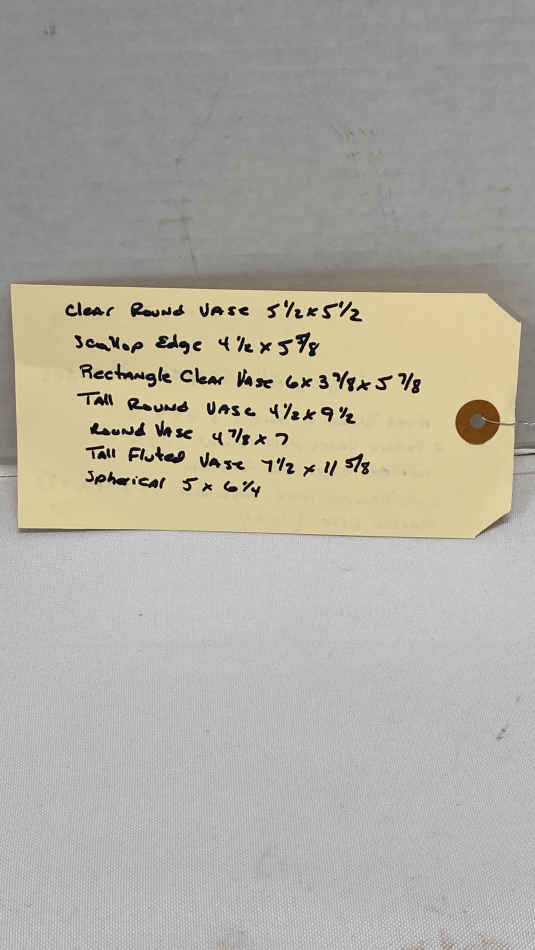 Clear Round Vase 5 1/2 x 5 1/2
Scallop Edge 4 1/2 x 5 7/8
Rectangle Clear Vase 6 x 3 7/8 x 5 7/8
Tall Round Vase 4 1/2 x 9 1/2
Round Vase 4 7/8 x 7
Tall Fluted Vase 7 1/2 x 11 5/8
Spherical 5 x 6 1/4